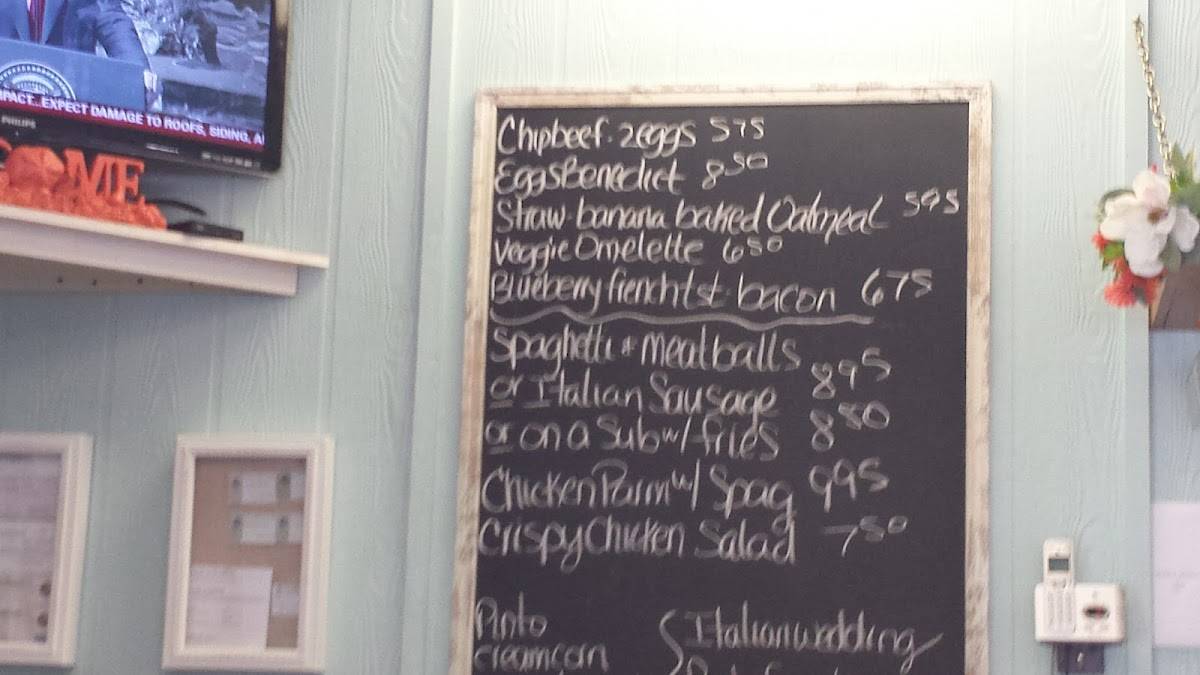 IPACT...EXPECT DAMAGE TO ROOFS, SIDING, A
PHILIPS
OME
Chipbeef. 2eggs 575
EggsBenedict 850
Straw-banana baked Oatmeal 595
Veggie Omelette 650
Blueberry frenchtst. bacon 675
Spaghetti + meatballs
or Italian Sausage 895
or on a Sub w/ fries 850
Chicken Parm w/ Spag 995
Crispy Chicken Salad 750
Pinto
creamcorn
Italian wedding